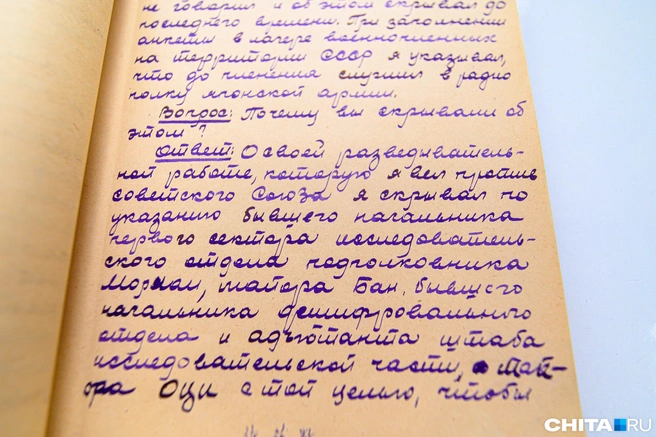 не говорил и об этом скрывал до
последнего времени. При заполнении
анкеты в лагере военнопленных
на территории СССР я указывал,
что до пленения служил в радио
полку японской армии.
Вопрос: Почему вы скрывали об
этом?
Ответ: О своей разведыватель-
ной работе, которую я вел против
советского Союза я скрывал по
указанию бывшего начальника
первого сектора исследователь-
ского отдела подполковника
Мориаи, майора Бан, бывшего
начальника дешифровального
отдела и адъютанта штаба
исследовательской части, май-
ора Оци с той целью, чтобы
CHITA.RU